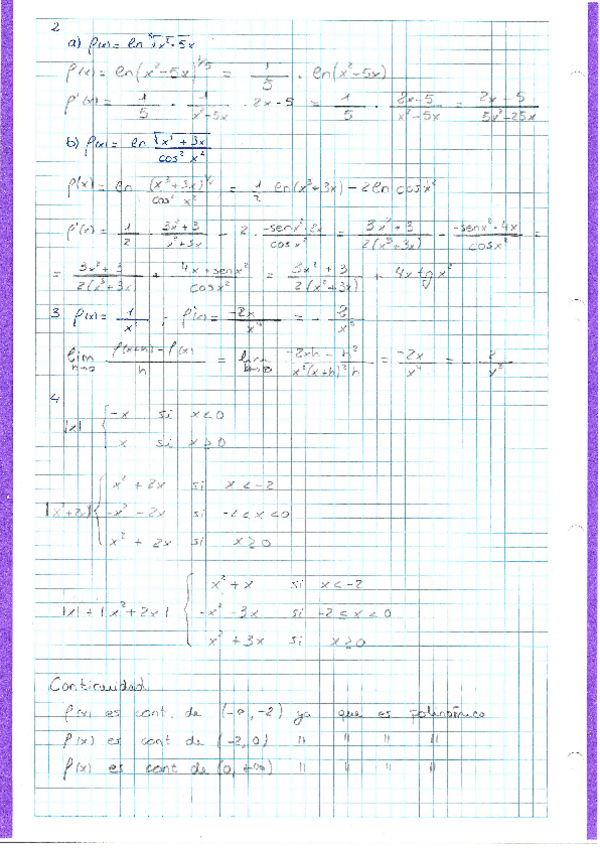 2
a) f(x) = ln ⁵√x²-5x
f(x) = ln(x²-5x)^1/5 = 1/5 · ln(x²-5x)
f'(x) = 1/5 · 1/x²-5x · 2x-5 = 1/5 · 2x-5/x²-5x = 2x-5/5x²-25x
b) f(x) = ln √x³+3x/cos² x²
f(x) = ln (x³+3x)^½/cos² x² = 1/2 ln(x³+3x) - 2 ln cos x²
f'(x) = 1/2 · 3x²+3/x³+3x - 2 · -senx²·2x/cosx² = 3x²+3/2(x³+3x) - -senx²·4x/cosx² =
= 3x²+3/2(x³+3x) + 4x·senx²/cosx² = 3x²+3/2(x³+3x) + 4x tg x²
3 f(x) = 1/x² ; f'(x) = -2x/x⁴ = - 2/x³
lim h→0 f(x+h)-f(x)/h = lim h→0 -2xh-h²/x²(x+h)²h = -2x/x⁴ = - 2/x³
4
|x| { -x si x<0
x si x≥0
|x²+2x| { x²+2x si x<-2
-x²-2x si -2<x<0
x²+2x si x≥0
|x|+|x²+2x| { x²+x si x<-2
-x²-3x si -2≤x<0
x²+3x si x≥0
Continuidad
f(x) es cont. de (-∞,-2) ya que es polinómica
f(x) es cont de (-2,0) " " " "
f(x) es cont de (0,+∞) " " " "